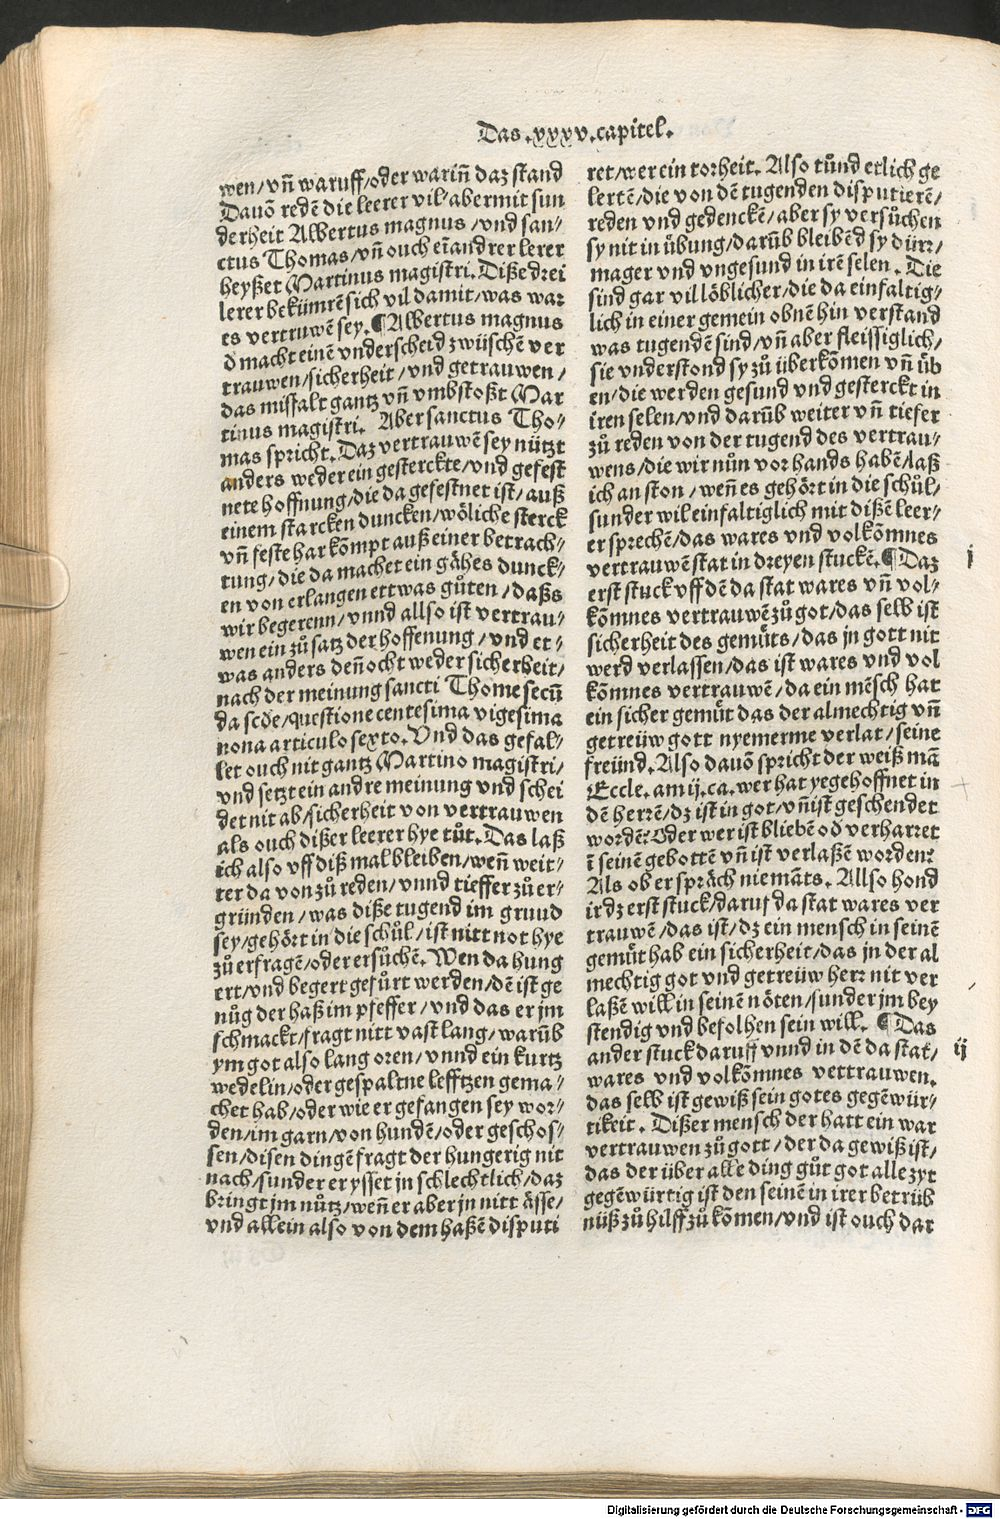 Das .xxxv. capitel.
wen/vñ waruff/oder wariñ daz stand
Dauō redē die leerer vil/aber mit sun
derheit Albertus magnus/vnd san⸗
ctus Thomas/vñ ouch eīandrer lerer
heyßet Martinus magistri. Diße drei
lerer bekümrē sich vil damit/was war
es vertruwē sey. ¶Albertus magnus
d̄ macht einē vnderscheid zwüschē ver
trauwen/sicherheit/vnd getrauwen/
das missalt gantz vñ vmbstoßt Mar
tinus magistri. Aber sanctus Tho⸗
mas spricht. Daz vertrauwē sey nützt
anders weder ein gesterckte/vnd gefest
nete hoffnung/die da gefestnet ist/auß
einem starcken duncken/wöliche sterck
vñ feste har kōmpt auß einer betrach⸗
tung/die da machet ein gähes dunck⸗
en von erlangen ettwas gůten/daßs
wir begerenn/vnnd allso ist vertrau⸗
wen ein zů satz der hoffenung/vnd et⸗
was anders deñocht weder sicherheit/
nach der meinung sancti Thome secū
da scd̄e/questione centesima vigesima
nona articulo sexto. Vnd das gefal⸗
let ouch nit gantz Martino magistri/
vnd setzt ein andre meinung vnd schei
det nit ab/sicherheit von vertrauwen
als ouch dißer leerer hye tůt. Das laß
ich also vff diß mal bleiben/weñ weit⸗
ter da von zů reden/vnnd tieffer zů er⸗
gründen/was diße tugend im grund
sey/gehört in die schůl/ist nitt not hye
zů erfragē/oder ersůchē. Wen da hung
ert/vnd begert gefůrt werden/dē ist ge
nůg der haß im pfeffer/vnd das er jm
schmackt/fragt nitt vast lang/warūb
ym got also lang oren/vnnd ein kurtz
wedelin/oder gespaltne lefftzen gema⸗
chet hab/oder wie er gefangen sey wor⸗
den/im garn/von hundē/oder geschos⸗
sen/disen dingē fragt der hungerig nit
nach/sunder er ysset jn schlechtlich/daz
bringt jm nůtz/weñ er aber jn nitt ässe/
vnd allein also von dem haßē disputi
ret/wer ein torheit. Also tůnd etlich ge
lertē/die von dē tugenden disputierē/
reden vnd gedenckē/aber sy versůchen
sy nit in übung/darūb bleibēd sy dürr/
mager vnd vngesund in irē selen. Die
sind gar vil löblicher/die da einfaltig⸗
lich in einer gemein obnē hin verstand
was tugendē sind/vñ aber fleissiglich/
sie vnderstond sy zů überkōmen vñ üb
en/die werden gesund vnd gesterckt in
iren selen/vnd darūb weiter vñ tiefer
zů reden von der tugend des vertrau⸗
wens/die wir nůn vor hands habē/laß
ich an ston/weñ es gehört in die schůl/
sunder wil einfaltiglich mit dißē leer⸗
er sprechē/das wares vnd volkōmnes
vertrauwē stat in dreyen stuckē. ¶Daz
erst stuck vff dē da stat wares vñ vol⸗
kōmnes vertrauwē zů got/das selb ist
sicherheit des gemüts/das jn gott nit
werd verlassen/das ist wares vnd vol
kōmnes vertrauwē/da ein mēsch hat
ein sicher gemüt das der almechtig vñ
getreüw gott nyemerme verlat/seine
freünd. Also dauō spricht der weiß mā
Eccle. am ij. ca. wer hat yegehoffnet in
dē herrē/dz ist in got/vñ ist geschendet
wordē? Oder wer ist bliebē od̄ verharret
ī seinē gebottē vñ ist verlaßē worden?
Als ob er spräch niemāts. Allso hond
ir dz erst stuck/daruf da stat wares ver
trauwē/das ist/dz ein mensch in seinē
gemüt hab ein sicherheit/das jn der al
mechtig got vnd getreüw herr nit ver
laßē will in seinē nöten/sunder jm bey
stendig vnd befolhen sein will. ¶Das
ander stuck daruff vnnd in dē da stat/
wares vnd volkōmnes vertrauwen.
das selb ist gewiß sein gotes gegēwür⸗
tikeit. Dißer mensch der hatt ein war
vertrauwen zů gott/der da gewiß ist/
das der über alle ding gůt got alle zyt
gegēwürtig ist den seinē in irer betrüb
nüß zů hilff zů kōmen/vnd ist ouch dar
i
ij
Digitalisierung gefördert durch die Deutsche Forschungsgemeinschaft - DFG